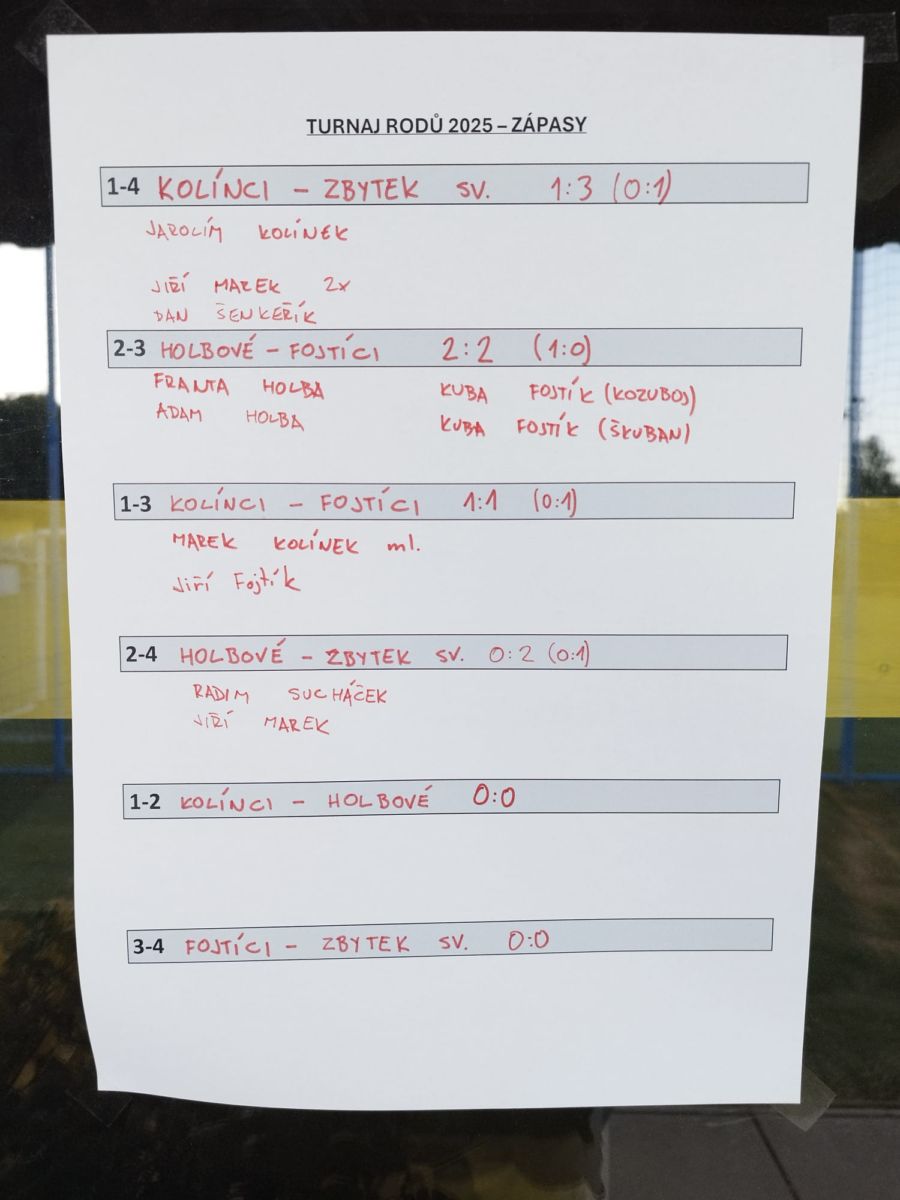 TURNAJ RODŮ 2025 – ZÁPASY
1-4 KOLÍNCI – ZBYTEK SV. 1:3 (0:1)
JAROLÍM KOLÍNEK
JIŘÍ MAREK 2x
DAN ŠENKEŘÍK
2-3 HOLBOVÉ – FOJTÍCI 2:2 (1:0)
FRANTA HOLBA KUBA FOJTÍK (KOZUBOJ)
ADAM HOLBA KUBA FOJTÍK (ŠKUBAN)
1-3 KOLÍNCI – FOJTÍCI 1:1 (0:1)
MAREK KOLÍNEK ml.
Jiří Fojtík
2-4 HOLBOVÉ – ZBYTEK SV. 0:2 (0:1)
RADIM SUCHÁČEK
JIŘÍ MAREK
1-2 KOLÍNCI – HOLBOVÉ 0:0
3-4 FOJTÍCI – ZBYTEK SV. 0:0